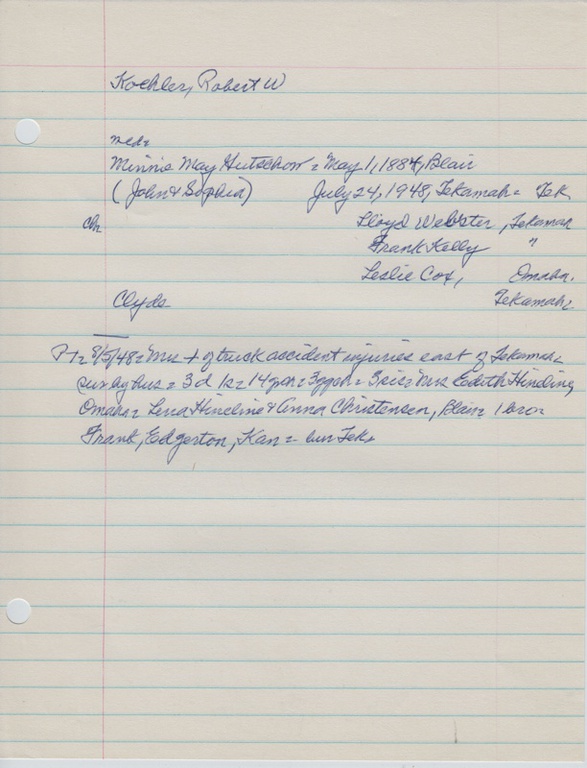 Koehler, Robert W
med=
Minnie May Hutschow = May 1, 1884, Blair
(John & Sophia) July 24, 1948, Tekamah = Tek
ch Lloyd Webster, Tekamah
Frank Kelly "
Leslie Cox, Omaha,
Clyde Tekamah=
8/5/48 = Mrs + of truck accident injuries east of Tekamah=
sur by hus = 3 d 1s = 14 gch = 3 ggch = 3 sis = Mrs Edith Hineline,
Omaha = Lena Hineline & Anna Christensen, Blair= 1 bro=
Frank, Edgerton, Kan = bur Tek=